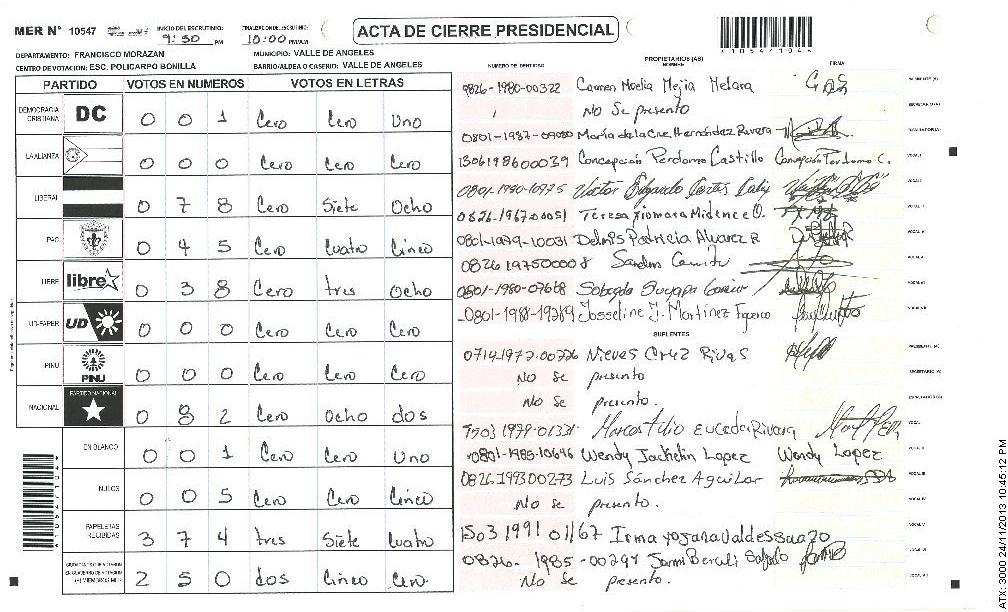 MER N° 10547 INICIO DEL ESCRUTINIO: 9:30 PM FINALIZACION DEL ESCRUTINIO: 10:00 PM/AM
ACTA DE CIERRE PRESIDENCIAL
DEPARTAMENTO: FRANCISCO MORAZAN MUNICIPIO: VALLE DE ANGELES
CENTRO DE VOTACION: ESC. POLICARPO BONILLA BARRIO/ALDEA O CASERIO: VALLE DE ANGELES
PARTIDO VOTOS EN NUMEROS VOTOS EN LETRAS
DEMOCRACIA CRISTIANA DC 0 0 1 Cero Cero Uno
LA ALIANZA 0 0 0 Cero Cero Cero
LIBERAL 0 7 8 Cero Siete Ocho
PAC 0 4 5 Cero Cuatro Cinco
LIBRE libre 0 3 8 Cero tres Ocho
UD-FAPER UD 0 0 0 Cero Cero Cero
PINU PINU 0 0 0 Cero Cero Cero
NACIONAL PARTIDO NACIONAL 0 8 2 Cero Ocho dos
EN BLANCO 0 0 1 Cero Cero Uno
NULOS 0 0 5 Cero Cero Cinco
PAPELETAS RECIBIDAS 3 7 4 tres Siete Cuatro
CIUDADANOS QUE VOTARON EN CUADERNO DE VOTACION (+) MIEMBROS MER 2 5 0 dos Cinco Cero
PROPIETARIOS (AS)
NUMERO DE IDENTIDAD NOMBRE FIRMA
0826-1980-00322 Carmen Noelia Mejia Melara PRESIDENTE (A)
No Se presento SECRETARIO (A)
0801-1987-09080 Maria de la Cruz Hernández Rivera
1306198600039 Concepción Perdomo Castillo Concepción Perdomo C. VOCAL I
0801-1980-10975 Victor Edgardo VOCAL II
0826-1967-00051 Teresa Xiomara Midence O.
0801-1979-10031 Delmis Patricia Alvarez R
0826197500008 Sandra
0801-1980-07668 Suyapa
0801-1988-19269 Josseline J. Martinez Figueroa
SUPLENTES
0714-1977-00226 Nieves Cruz Rivas PRESIDENTE (A)
No Se presento SECRETARIO (A)
No Se presento.
1503 1979-01331 Marcos Tulio Euceda Rivera VOCAL I
0801-1985-10646 Wendy Jackelin Lopez Wendy Lopez VOCAL II
0826199300273 Luis Sánchez Aguilar VOCAL III
No Se presento. VOCAL IV
1503 1991 01167 Irma Yojana Valdes Suazo VOCAL V
0826-1985-00294
No Se presento.
ATX: 3000 24/11/2013 10:45:12 PM